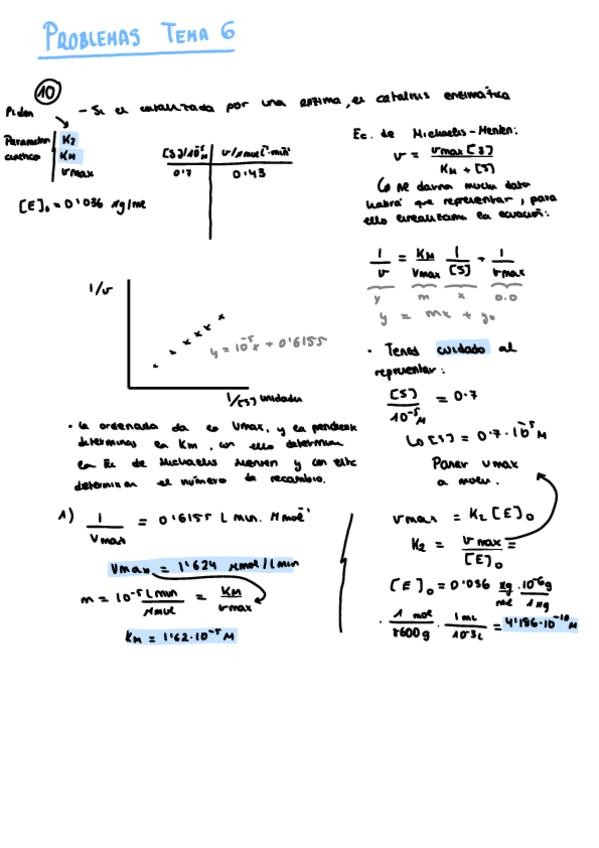 PROBLEMAS TEMA 6
10
Piden
- Si es catalizada por una enzima, es catálisis enzimática
Parámetros cinéticos
K2
KM
vmax
[E]0 = 0'036 μg/ml
[S]/10⁻⁵M v/μmol L⁻¹·min⁻¹
0'7 0'43
Ec. de Michaelis-Menten:
v = vmax [S] / KM + [S]
↳ Me darán muchos datos
habrá que representar, para
ello linealizamos la ecuación:
1/v = KM/Vmax 1/[S] + 1/vmax
y m x o.o
y = mx + y0
1/v
y = 10⁻⁵x + 0'6155
1/[S] unidades
• Tened cuidado al
representar:
[S]/10⁻⁵M = 0'7
↳ [S] = 0'7·10⁻⁵M
• La ordenada da es Vmax, y la pendiente
determinas la KM, con ello determinas
la Ec de Michaelis Menten y con ello
determinan el número de recambio.
Pasar vmax
a molar.
1) 1/Vmax = 0'6155 L min. μmol⁻¹
Vmax = 1'624 μmol/L min
m = 10⁻⁵ L min/μmol = KM/vmax
KM = 1'62·10⁻⁵ M
vmax = K2 [E]0
K2 = vmax/[E]0 =
[E]0 = 0'036 μg/ml · 10⁻⁶g/1μg
· 1 mol/8600g · 1mL/10⁻³L = 4'186·10⁻¹⁰ M